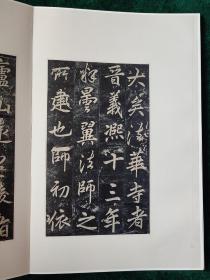 大矣法華寺者
晉義熙十三年
釋曇翼法師之
所建也師初依
廬山遠